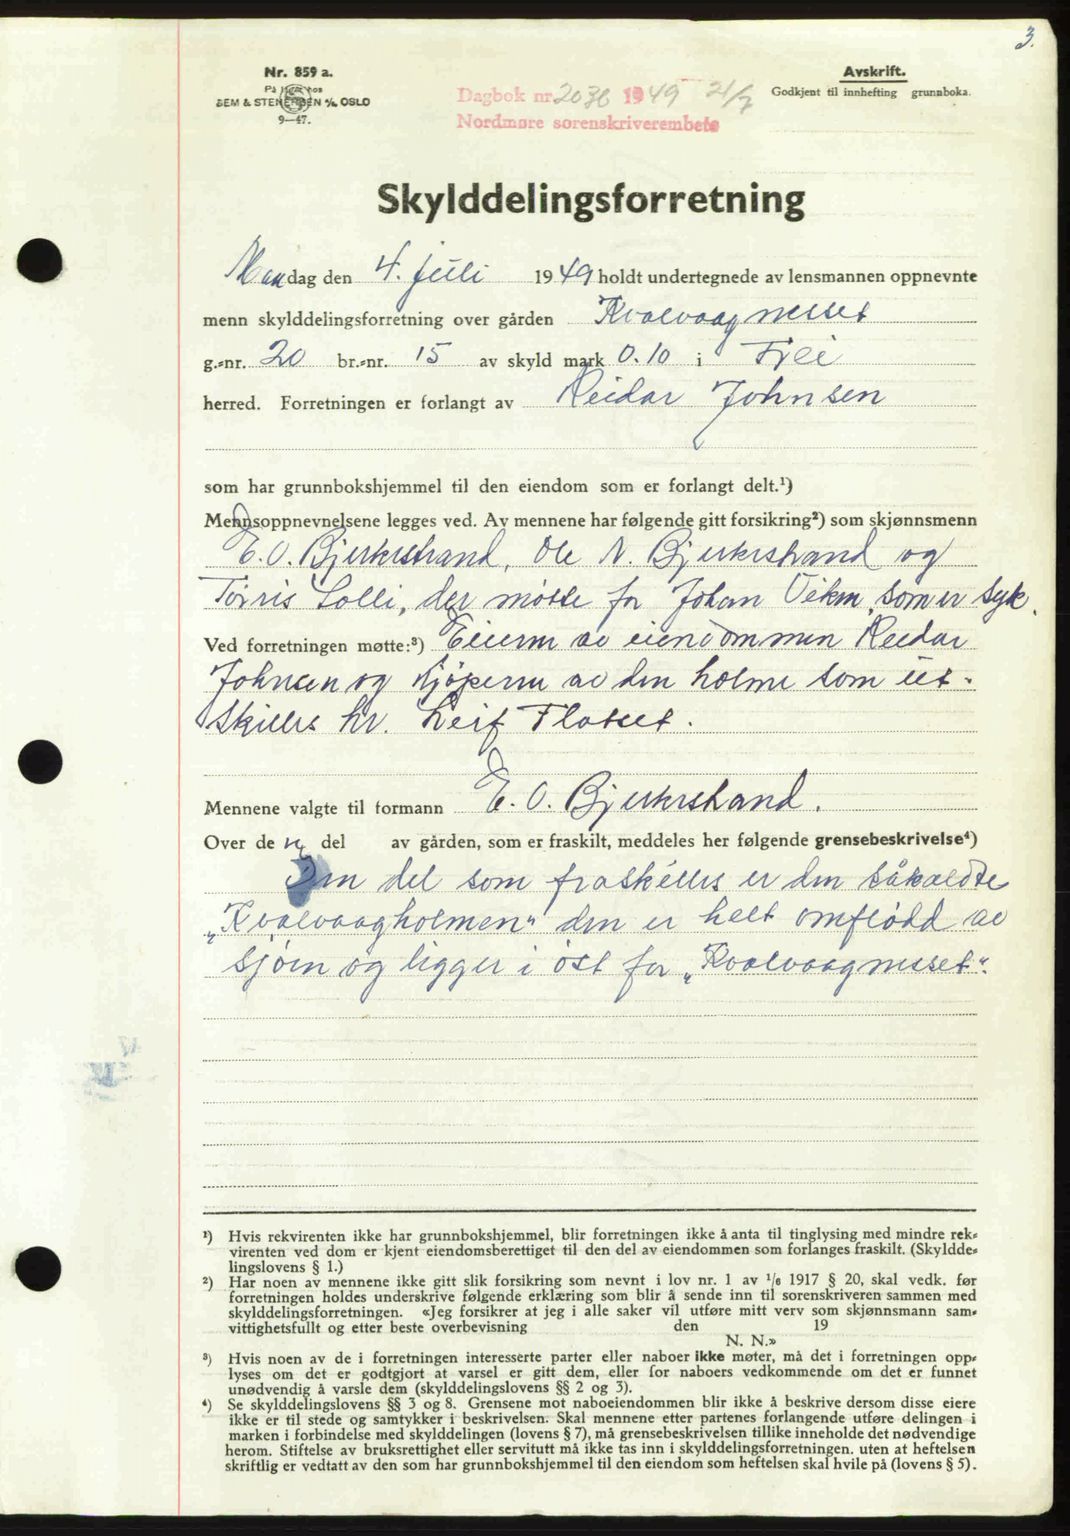 3.
Nr. 859 a.
På lager hos
SEM & STENERSEN A/S OSLO
9—47.
Avskrift.
Godkjent til innhefting grunnboka.
Dagbok nr. 2038 1949 21/7
Nordmøre sorenskriverembete
Skylddelingsforretning
Mandag den 4. juli 1949 holdt undertegnede av lensmannen oppnevnte
menn skylddelingsforretning over gården Kvalvaagnesset
g.-nr. 20 br.-nr. 15 av skyld mark 0.10 i Frei
herred. Forretningen er forlangt av Reidar Johnsen
som har grunnbokshjemmel til den eiendom som er forlangt delt.¹)
Mennsoppnevnelsene legges ved. Av mennene har følgende gitt forsikring²) som skjønnsmenn
E. O. Bjerkestrand, Ole N. Bjerkestrand og
Torris Solli, der møtte for Johan Viken, som er syk.
Ved forretningen møtte:³) Eieren av eiendommen Reidar
Johnsen og kjøperen av den holme som ut-
skilles hr. Leif Flatset.
Mennene valgte til formann E. O. Bjerkestrand.
Over de n del av gården, som er fraskilt, meddeles her følgende grensebeskrivelse⁴)
Den del som fraskilles er den såkaldte
„Kvalvaagholmen“ den er helt omflødd av
sjøen og ligger i øst for „Kvalvaagnesset“.
¹) Hvis rekvirenten ikke har grunnbokshjemmel, blir forretningen ikke å anta til tinglysing med mindre rek-
virenten ved dom er kjent eiendomsberettiget til den del av eiendommen som forlanges fraskilt. (Skyldde-
lingslovens § 1.)
²) Har noen av mennene ikke gitt slik forsikring som nevnt i lov nr. 1 av 1/6 1917 § 20, skal vedk. før
forretningen holdes underskrive følgende erklæring som blir å sende inn til sorenskriveren sammen med
skylddelingsforretningen. «Jeg forsikrer at jeg i alle saker vil utføre mitt verv som skjønnsmann sam-
vittighetsfullt og etter beste overbevisning den 19
N. N.»
³) Hvis noen av de i forretningen interesserte parter eller naboer ikke møter, må det i forretningen opp-
lyses om det er godtgjort at varsel er gitt dem, eller for naboers vedkommende om det er funnet
unødvendig å varsle dem (skylddelingslovens §§ 2 og 3).
⁴) Se skylddelingslovens §§ 3 og 8. Grensene mot naboeiendommen blir ikke å beskrive dersom disse eiere
ikke er til stede og samtykker i beskrivelsen. Skal mennene etter partenes forlangende utføre delingen i
marken i forbindelse med skylddelingen (lovens § 7), må grensebeskrivelsen tillike inneholde det nødvendige
herom. Stiftelse av bruksrettighet eller servitutt må ikke tas inn i skylddelingsforretningen. uten at heftelsen
skriftlig er vedtatt av den som har grunnbokshjemmel til den eiendom som heftelsen skal hvile på (lovens § 5).